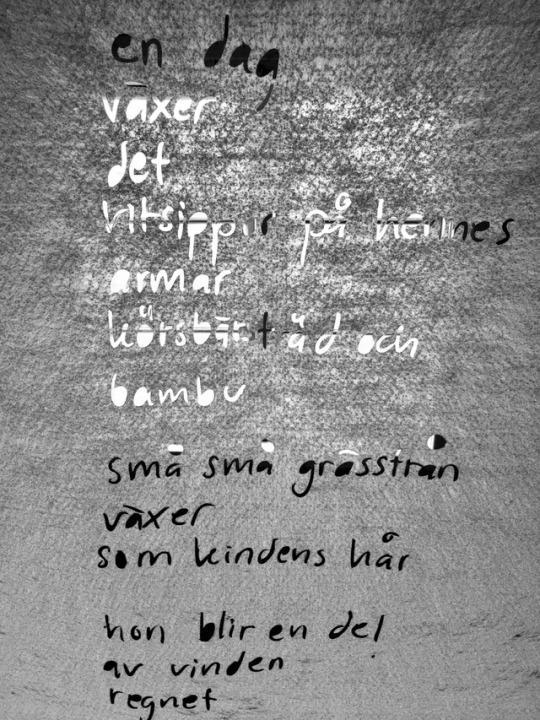 en dag
växer
det
vitsippir på hennes
armar
körsbärsträd och
bambu
små små grässtrån
växer
som kindens hår
hon blir en del
av vinden
regnet